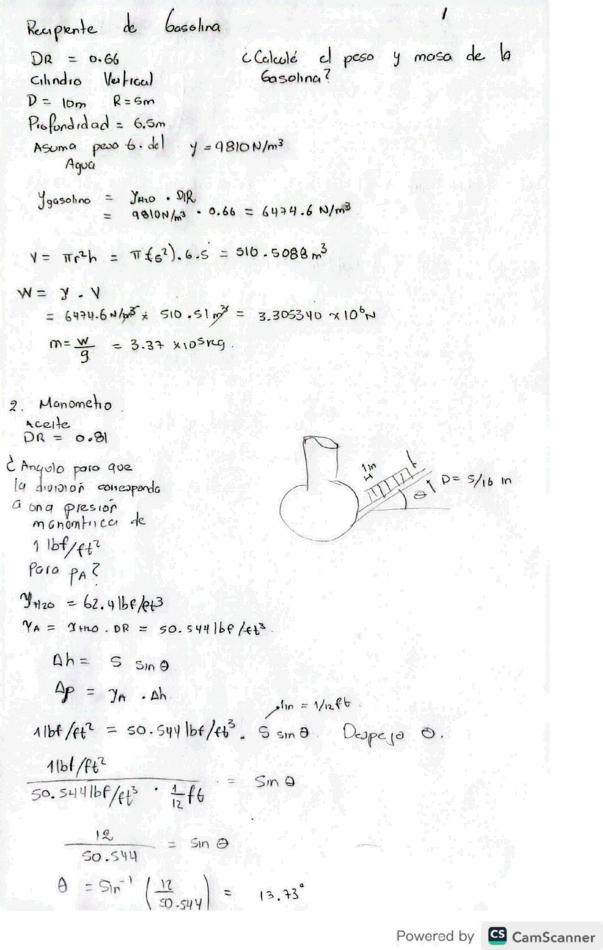 1
Recipiente de Gasolina
DR = 0.66
¿Calculé el peso y masa de la
Gasolina?
Cilindro Vertical
D = 10m R = 5m
Profundidad = 6.5m
Asuma peso 6. del γ = 9810 N/m³
Agua
γgasolina = γH2O · DR
= 9810 N/m³ · 0.66 = 6474.6 N/m³
V = πr²h = π(5²).6.5 = 510.5088 m³
W = γ · V
= 6474.6 N/m³ * 510.51 m³ = 3.305340 × 10⁶ N
m = w/g = 3.37 × 10⁵ kg.
2. Manometro
Aceite
DR = 0.81
¿Angulo para que
la division corresponda
a una presion
manometrica de
1 lbf/ft²
Para PA?
1 in
D = 5/16 in
θ
γH2O = 62.4 lbf/ft³
γA = γH2O · DR = 50.544 lbf/ft³
Δh = S sin θ
Δp = γA · Δh
1in = 1/12 ft
1 lbf/ft² = 50.544 lbf/ft³ · S sin θ Despejo θ.
1 lbf/ft² / 50.544 lbf/ft³ · 1/12 ft = Sin θ
12 / 50.544 = Sin θ
θ = Sin⁻¹ (12/50.544) = 13.73°
Powered by CS CamScanner